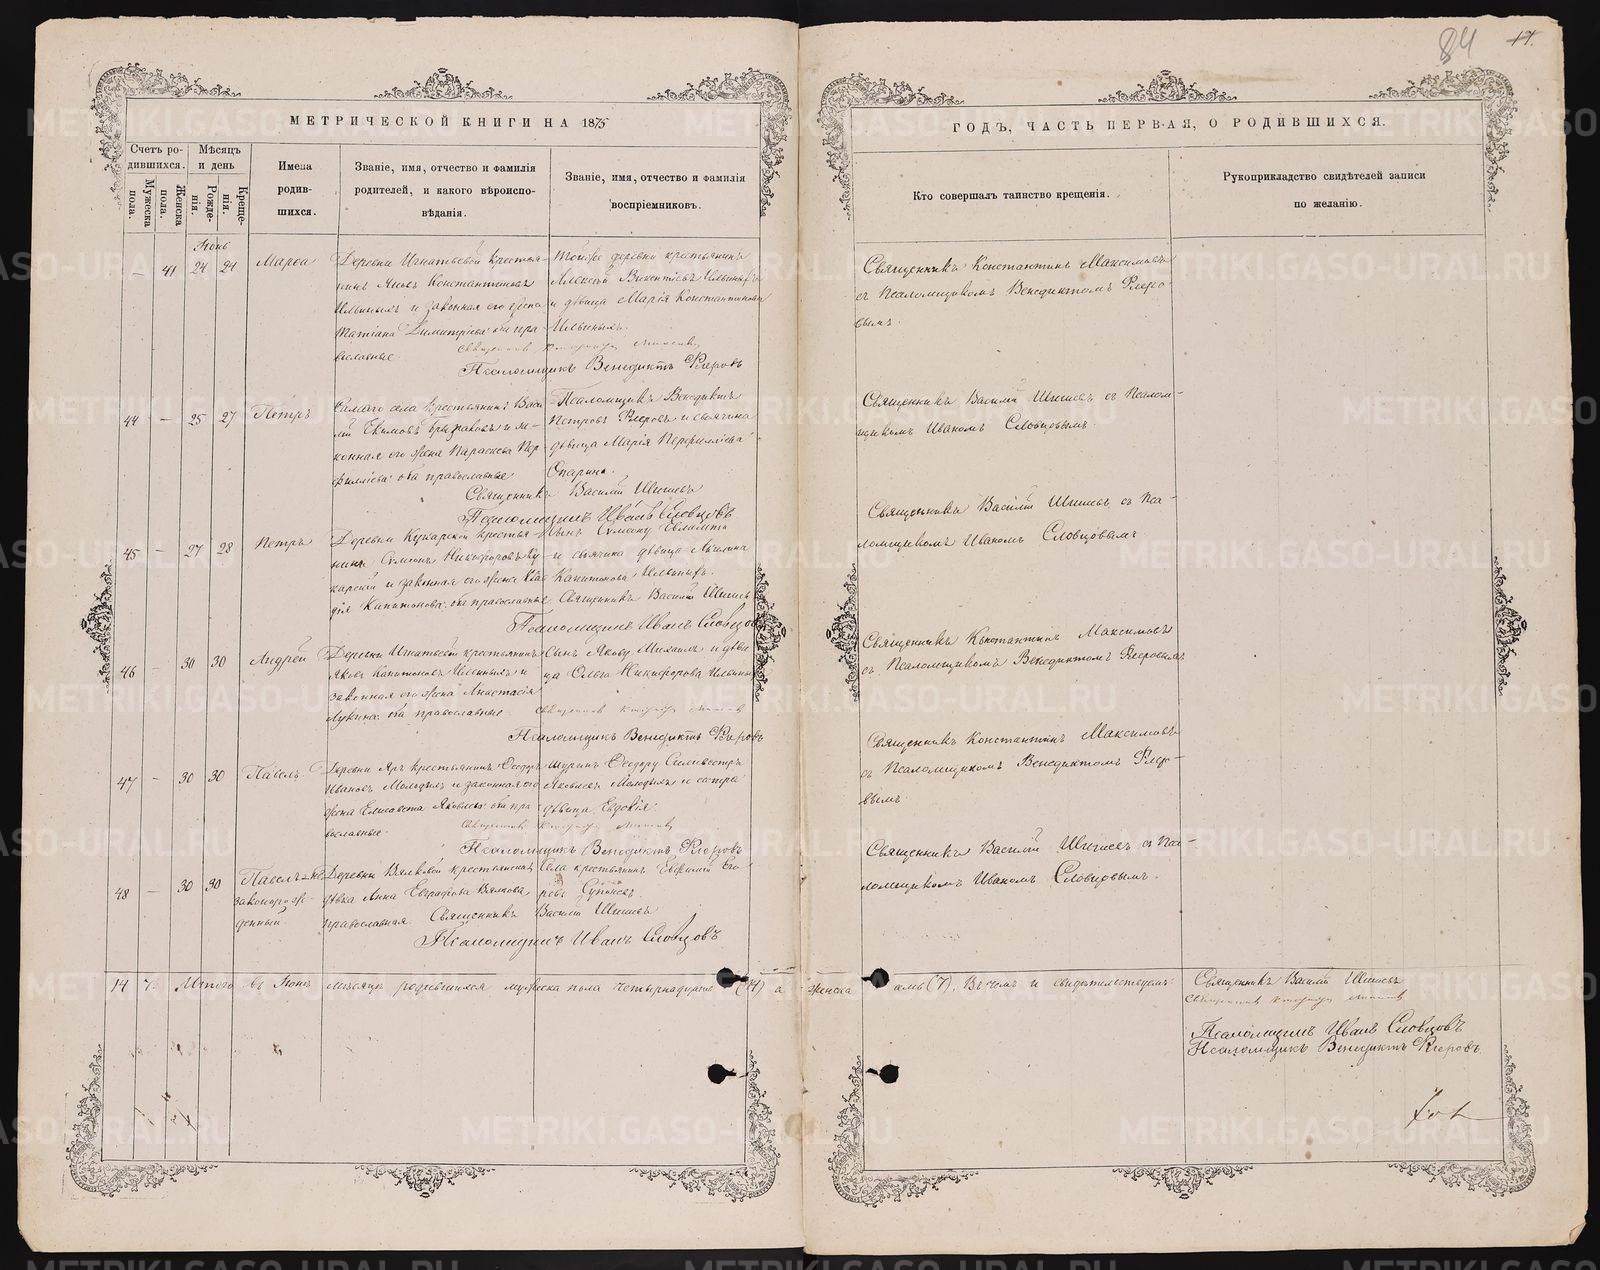 84 17.
МЕТРИЧЕСКОЙ КНИГИ НА 1875
Счетъ ро-
дившихся.
Мѣсяцъ
и день
Мужеска
пола.
Женска
пола.
Рожде-
нія.
Креще-
нія.
Имена
родив-
шихся.
Званіе, имя, отчество и фамилія
родителей, и какого вѣроиспо-
вѣданія.
Званіе, имя, отчество и фамилія
воспріемниковъ.
Іюнь
— 41 24 24 Марѳа
Деревни Игнатьевой крестья-
нинъ Яковъ Константиновъ
Ильиныхъ и законная его жена
Татіана Димитріева: оба пра-
вославные.
Тойже деревни крестьянинъ
Алексѣй Викентіевъ Ильиныхъ
и дѣвица Марія Константинова
Ильиныхъ.
Псаломщикъ Венедиктъ Флеровъ
44 — 25 27 Петръ
Самаго села крестьянинъ Васи-
лій Екимовъ и за-
конная его жена Параскева Пер-
филліева: оба православные
Псаломщикъ Венедиктъ
Петровъ Флеровъ и
дѣвица Марія Перфилліева
Опарина.
Священникъ Василій Шишевъ
Псаломщикъ Иванъ Словцовъ
45 — 27 28 Петръ
Деревни Кукарской крестья-
нинъ Симеонъ Никифоровъ Ку-
карскій и законная его жена Клав-
дія Капитонова: оба православные
и дѣвица Акилина
Капитонова Ильиныхъ.
Священникъ Василій Шишевъ
Псаломщикъ Иванъ Словцовъ
46 — 30 30 Андрей
Деревни Игнатьевой крестьянинъ
Яковъ Капитоновъ Ильиныхъ и
законная его жена Анастасія
Лукина: оба православные.
Сынъ Якову Михаилъ и дѣви-
ца Ольга Никифорова Ильиныхъ
Псаломщикъ Венедиктъ Флеровъ
47 — 30 30 Павелъ
Деревни Яръ крестьянинъ Ѳеодоръ
Ивановъ Молодыхъ и законная его
жена Елисавета Яковлева: оба пра-
вославные.
Шуринъ Ѳеодору Сильвестръ
Яковлевъ Молодыхъ и сестра
дѣвица Евдокія.
Псаломщикъ Венедиктъ Флеровъ
48 — 30 30 Павелъ не-
законорож-
денный
Деревни Вялковой крестьянская
дѣвка Анна Евграфова Вялкова,
православная.
Села крестьянинъ Евфимій Его-
ровъ
Священникъ Василій Шишевъ
Псаломщикъ Иванъ Словцовъ
14 7. Итого въ Іюнѣ мѣсяцѣ родившихся мужеска пола четырнадцать (14) а женска
ГОДЪ, ЧАСТЬ ПЕРВАЯ, О РОДИВШИХСЯ.
Кто совершалъ таинство крещенія.
Рукоприкладство свидѣтелей записи
по желанію.
Священникъ Константинъ Максимовъ
съ Псаломщикомъ Венедиктомъ Флеро-
вымъ.
Священникъ Василій Шишевъ съ Псалом-
щикомъ Иваномъ Словцовымъ.
Священникъ Василій Шишевъ съ Пса-
ломщикомъ Иваномъ Словцовымъ
Священникъ Константинъ Максимовъ
съ Псаломщикомъ Венедиктомъ Флеровымъ
Священникъ Константинъ Максимовъ
съ Псаломщикомъ Венедиктомъ Флеро-
вымъ.
Священникъ Василій Шишевъ съ Пса-
ломщикомъ Иваномъ Словцовымъ.
(7). Въ чемъ и свидѣтельствуемъ:
Священникъ Василій Шишевъ
Псаломщикъ Иванъ Словцовъ
Псаломщикъ Венедиктъ Флеровъ
METRIKI.GASO-URAL.RU